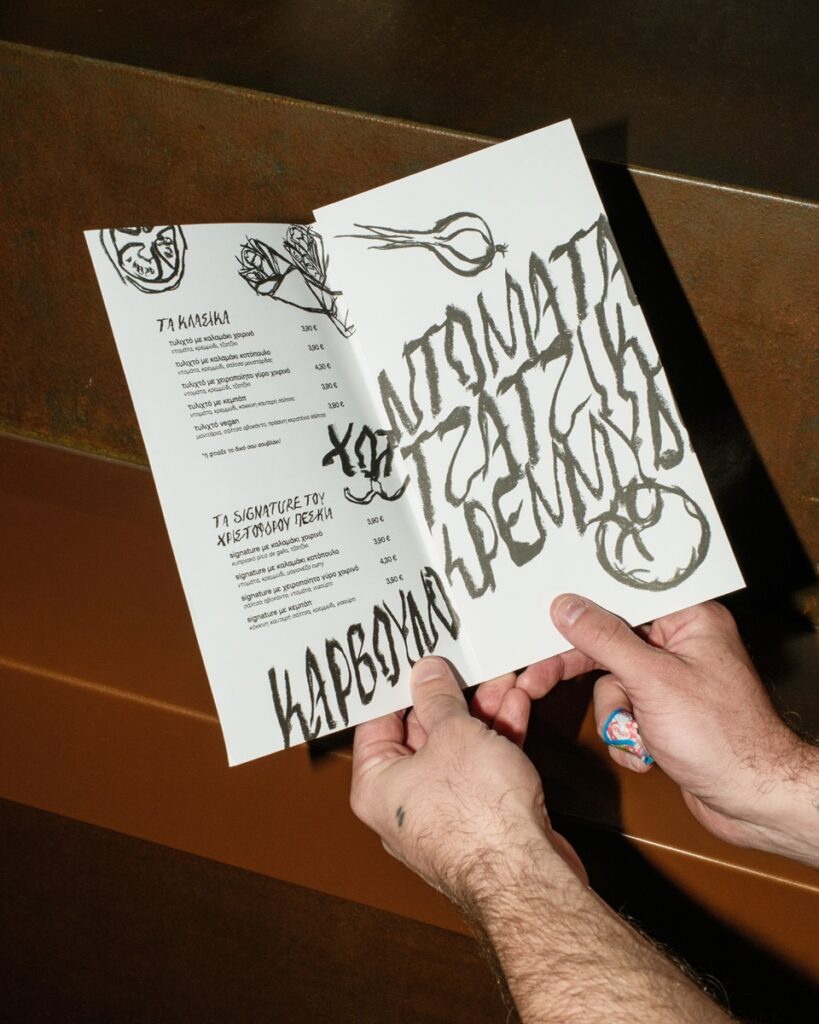 ΤΑ ΚΛΑΣΙΚΑ
τυλιχτό με καλαμάκι χοιρινό 3,90 €
ντομάτα, κρεμμύδι, τζατζίκι
τυλιχτό με καλαμάκι κοτόπουλο 3,90 €
ντομάτα, κρεμμύδι, σάλτσα μουστάρδας
τυλιχτό με χειροποίητο γύρο χοιρινό 4,30 €
ντομάτα, κρεμμύδι, τζατζίκι
τυλιχτό με κεμπάπ 3,90 €
ντομάτα, κρεμμύδι, κόκκινη καυτερή σάλτσα
τυλιχτό vegan 3,90 €
μανιτάρια, σάλτσα αβοκάντο, πράσινη κερασένια σάλτσα
*ή φτιάξε το δικό σου σουβλάκι!
ΤΑ SIGNATURE ΤΟΥ
ΧΡΙΣΤΟΦΟΡΟΥ ΠΕΣΚΙΑ
signature με καλαμάκι χοιρινό 3,90 €
κυπριακό pico de gallo, τζατζίκι
signature με καλαμάκι κοτόπουλο 3,90 €
ντομάτα, κρεμμύδι, μαγιονέζα curry
signature με χειροποίητο γύρο χοιρινό 4,30 €
σάλτσα αβοκάντο, ντομάτα, γιαούρτι
signature με κεμπάπ 3,90 €
κόκκινη καυτερή σάλτσα, κρεμμύδι, γιαούρτι
ΚΑΡΒΟΥΝΟ
ΝΤΟΜΑΤΑ
ΤΖΑΤΖΙΚ
ΚΡΕΜΜΥΔ